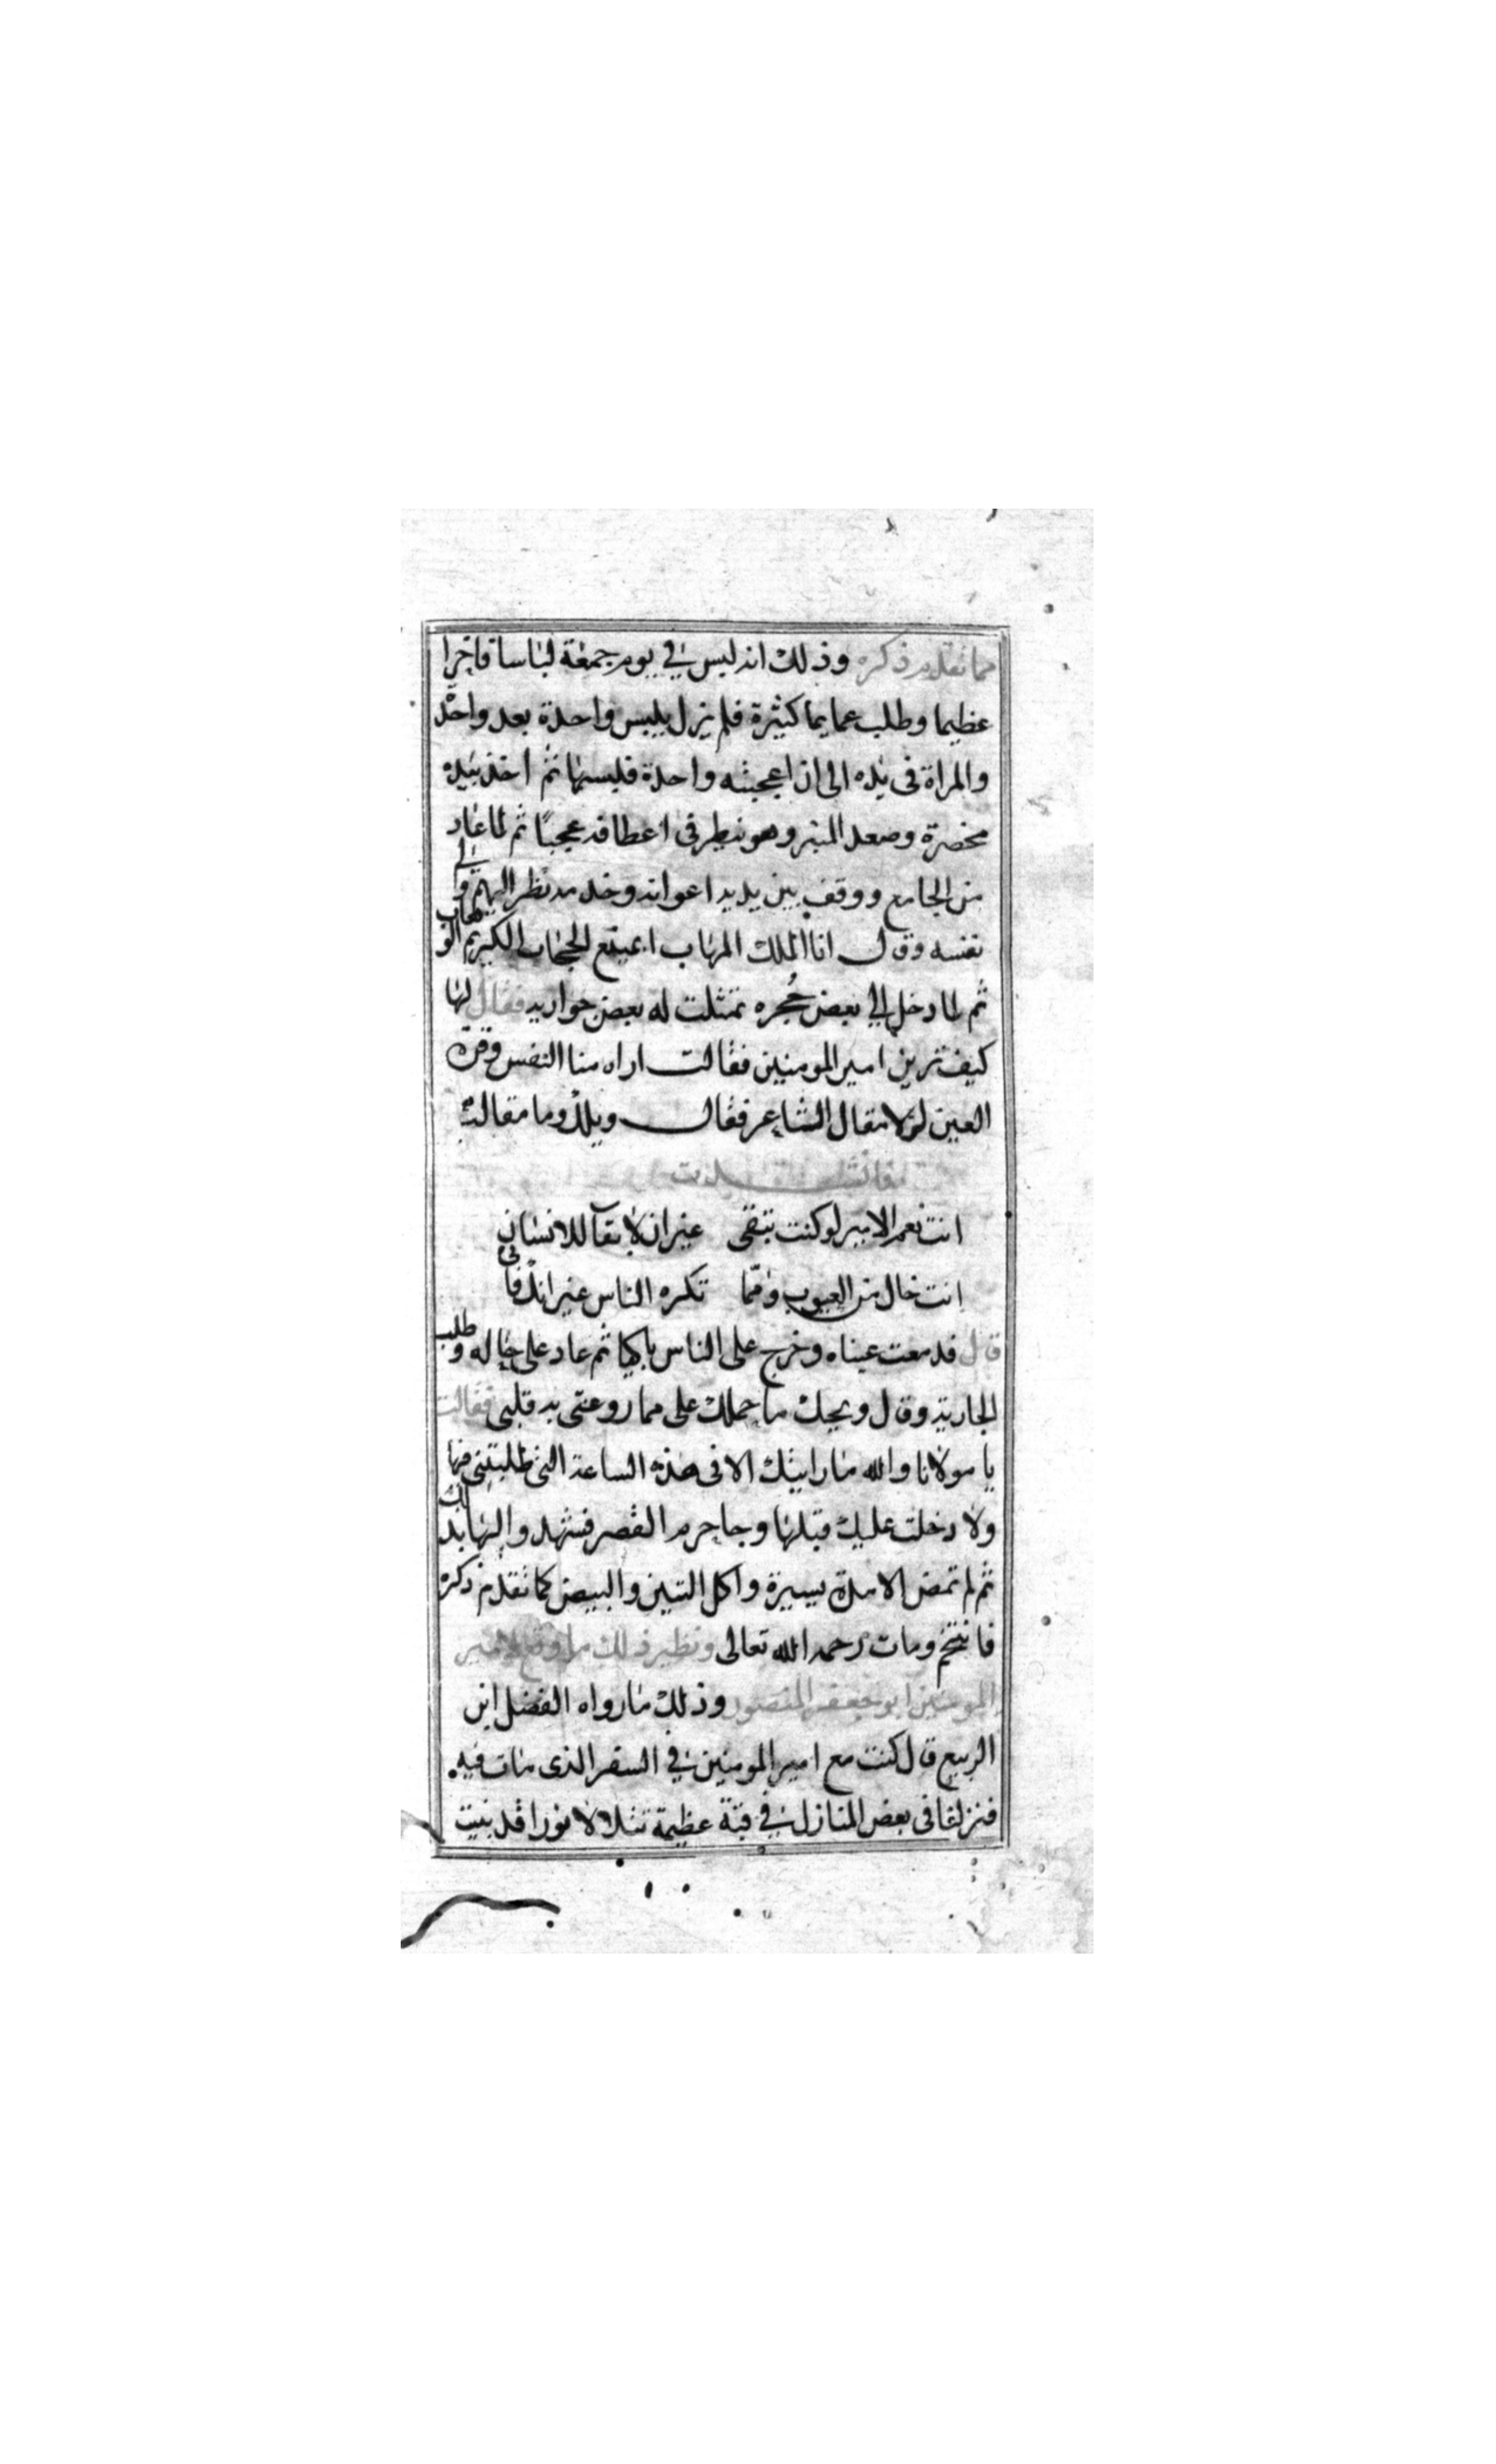 مما تقدم ذكره وذلك انه لبس في يوم جمعة لباسا فاخرا
عظيما وطلب عمايما كثيرة فلم يزل يلبس واحدة بعد واحدة
والمراة في يده الى ان اعجبته واحدة فلبسها ثم اخذ بيده
مخصرة وصعد المنبر وهو ينظر في اعطافه عجبًا ثم لما عاد
من الجامع ووقف بين يديه اعوانه وخدمه نظر اليهم والى
نفسه وقال انا الملك المهاب المجاب الكريم الوهاب
ثم لما دخل الي بعض حُجره تمثلت له بعض جواريه فقال لها
كيف ترين امير المومنين فقالت اراه منا النفس وقرة
العين لولا مقال الشاعر فقال ويلك وما مقالته
فانشدت
انت نعم الامير لو كنت تبقى غير ان لا بقا للانسان
انت خال من العيوب وممّا تكره الناس غير انك فاني
قال فدمعت عيناه وخرج على الناس باكيا ثم عاد على حاله وطلب
الجارية وقال ويحك ما حملك على مما روعتى به قلبى فقالت
يا مولانا والله ما رايتك الا فى هذه الساعة التى طلبتني فيها
ولا دخلت عليك قبلها وجا حرم القصر فشهدوا لها بذلك
ثم لم تمض الا مدة يسيرة واكل التين والبيض كما تقدم ذكره
فانتخم ومات رحمه الله تعالى ونظير ذلك ما وقع لامير
المومنين ابو جعفر المنصور وذلك ما رواه الفضل ابن
الربيع قال كنت مع امير المومنين في السفر الذى مات فيه
فنزلنا فى بعض المنازل في قبة عظيمة تتلالا نورا قد بنيت